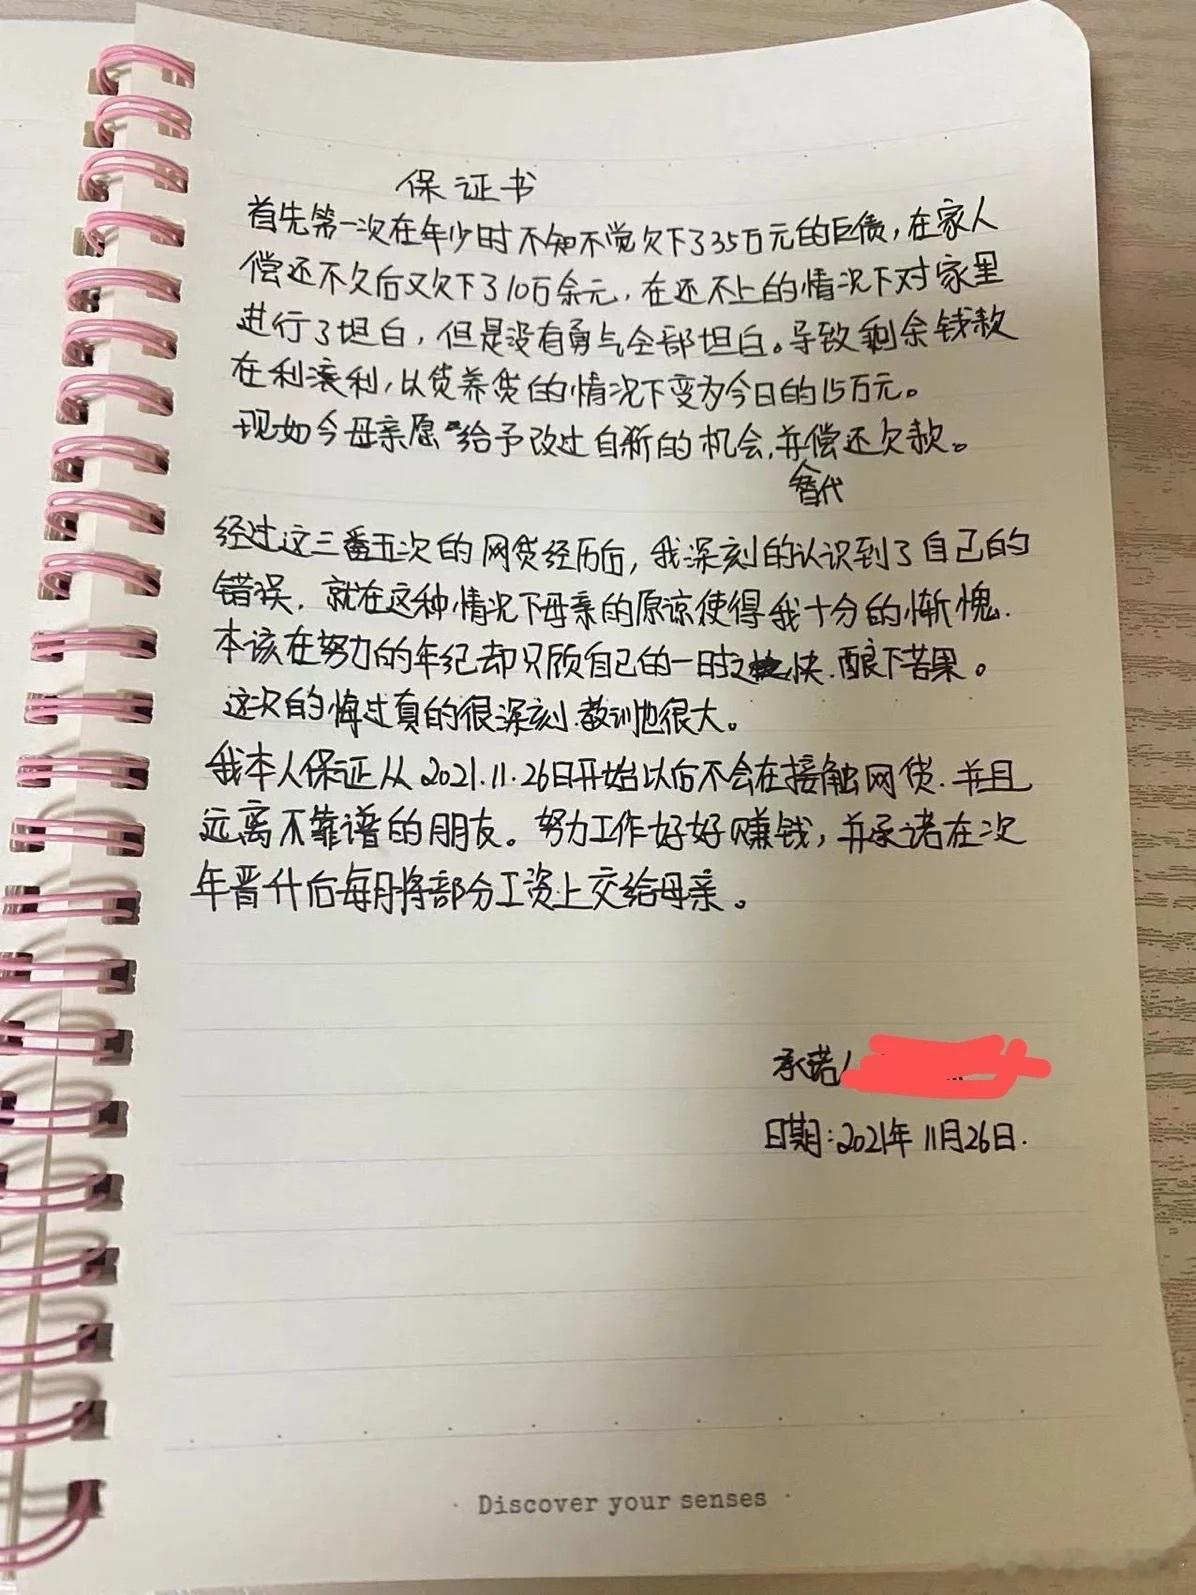 保证书
首先第一次在年少时不知不觉欠下了35万元的巨债，在家人
偿还不久后又欠下了10万余元，在还不上的情况下对家里
进行了坦白，但是没有勇气全部坦白。导致剩余钱款
在利滚利，以贷养贷的情况下变为今日的15万元。
现如今母亲愿给予改过自新的机会，并偿还欠款。
替代
经过这三番五次的网贷经历后，我深刻的认识到了自己的
错误，就在这种情况下母亲的原谅使得我十分的惭愧.
本该在努力的年纪却只顾自己的一时之快.酿下苦果。
这次的悔过真的很深刻.教训也很大。
我本人保证从2021.11.26日开始以后不会在接触网贷.并且
远离不靠谱的朋友。努力工作好好赚钱，并承诺在次
年晋升后每月将部分工资上交给母亲。
承诺人
日期:2021年11月26日.
· Discover your senses ·